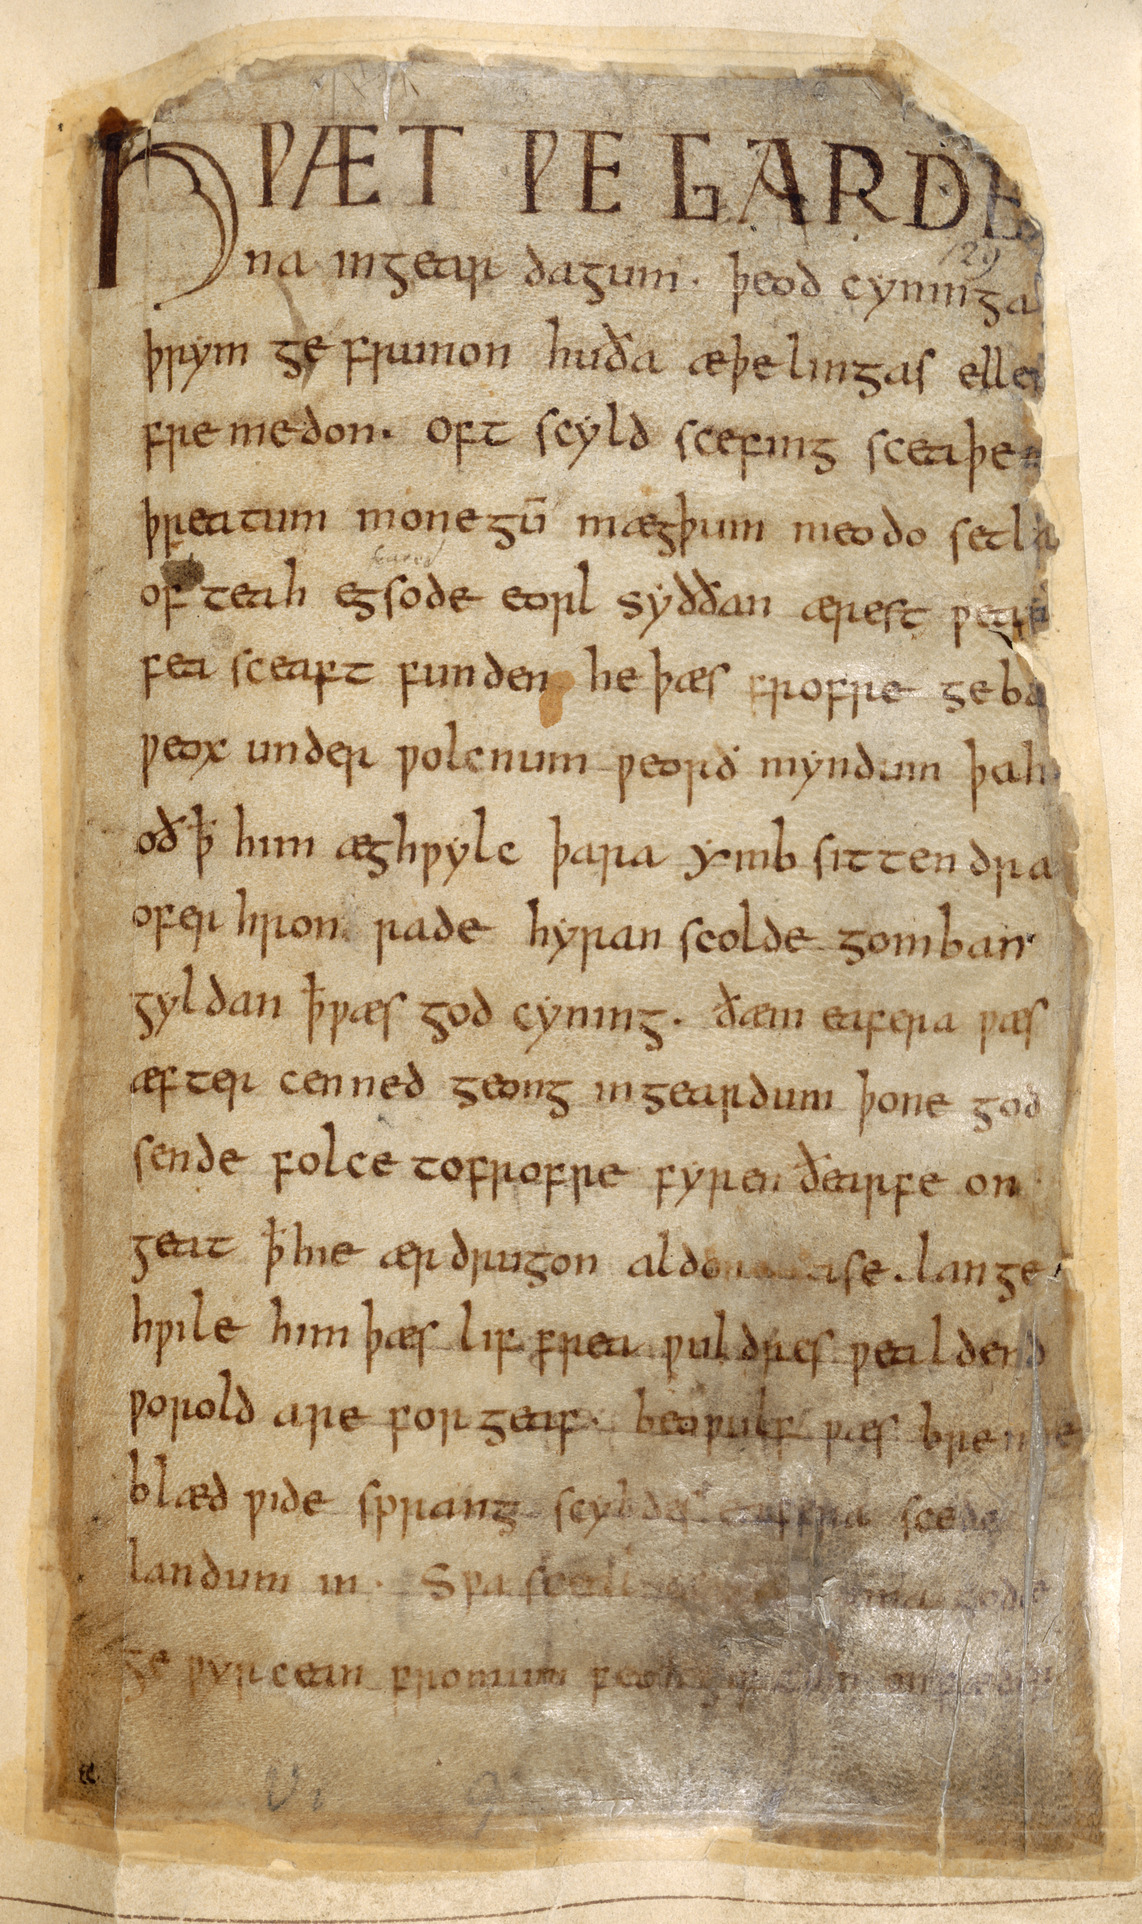 HǷÆT ǷE GARDE
na ingear dagum. þeod cyninga
þrym ge frunon huða æþelingas elle
fremedon. oft scyld scefing sceaþe
þreatum monegū mægþum meodo setla
of teah egsode eorl syððan ærest ƿear
fea sceaft funden he þæs frofre geba
ƿeox under ƿolcnum ƿeorð myndum þah
oð ꝥ him æghƿylc þara ymb sittendra
ofer hron rade hyran scolde gomban
gyldan ꝥ ƿæs god cyning. ðæm eafera ƿæs
æfter cenned geong ingeardum þone god
sende folce tofrofre fyren ðearfe on
geat ꝥ hie ær drugon aldo ase. lange
hƿile him þæs lif frea ƿuldres ƿealdend
ƿorold are for geaf. beoƿulf ƿæs breme
blæd ƿide sprang scyldes eafera scede
landum in. Sƿa gode
ge ƿyrcean fromum feoh giftum